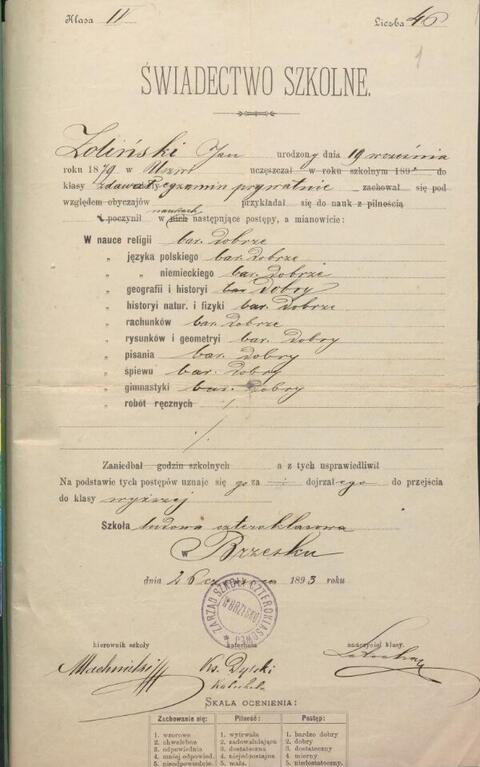 Klasa IV Liczba 46
1
ŚWIADECTWO SZKOLNE.
Zoliński Jan urodzony dnia 19 września
roku 1879 w uczęszczał w roku szkolnym 189 do
klasy zdawał egzamin prywatnie zachował się pod
względem obyczajów przykładał się do nauk z pilnością
i poczynił w nich naukach następujące postępy, a mianowicie:
W nauce religii bar. dobrze
„ języka polskiego bar. dobrze
„ „ niemieckiego bar. dobrze
„ geografii i historyi bar dobry
„ historyi natur. i fizyki bar. dobrze
„ rachunków bar. dobrze
„ rysunków i geometryi bar. dobry
„ pisania bar. dobry
„ śpiewu bar. dobry
„ gimnastyki bar. dobry
„ robót ręcznych ./.
./.
Zaniedbał godzin szkolnych a z tych usprawiedliwił
Na podstawie tych postępów uznaje się go za dojrzałego do przejścia
do klasy wyższej
Szkoła ludowa czteroklasowa
w Brzesku
dnia 26 czerwca 1893 roku
ZARZĄD SZKOŁY CZTEROKLASOWEJ
W BRZESKU
kierownik szkoły katecheta nauczyciel klasy.
Ks. Dylski
Katecheta
SKALA OCENIENIA:
Zachowanie się: Pilność: Postęp:
1. wzorowe 1. wytrwała 1. bardzo dobry
2. chwalebne 2. zadowalniająca 2. dobry
3. odpowiednie 3. dostateczna 3. dostateczny
4. mniej odpowied. 4. niejednostajna 4. mierny
5. nieodpowiednie. 5. mała. 5. niedostateczny